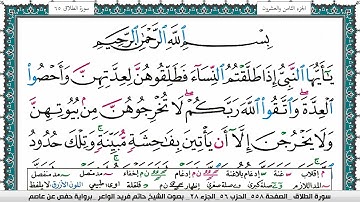 الجزء الثامن والعشرون
سورة الطلاق ٦٥
بِسْمِ اللَّهِ الرَّحْمَٰنِ الرَّحِيمِ
يَٰٓأَيُّهَا ٱلنَّبِىُّ إِذَا طَلَّقْتُمُ ٱلنِّسَآءَ فَطَلِّقُوهُنَّ لِعِدَّتِهِنَّ وَأَحْصُوا۟
ٱلْعِدَّةَ ۖ وَٱتَّقُوا۟ ٱللَّهَ رَبَّكُمْ ۖ لَا تُخْرِجُوهُنَّ مِنۢ بُيُوتِهِنَّ
وَلَا يَخْرُجْنَ إِلَّآ أَن يَأْتِينَ بِفَٰحِشَةٍ مُّبَيِّنَةٍ ۚ وَتِلْكَ حُدُودُ
سورة الطلاق الصفحة ٥٥٨ الحزب ٥٦ الجزء ٢٨ بصوت الشيخ حاتم فريد الواعر برواية حفص عن عاصم